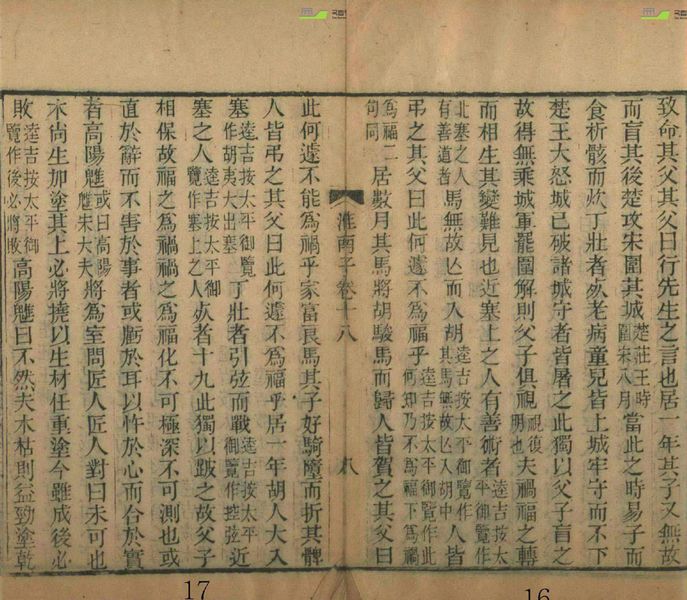 致命其父其父曰行先生之言也居一年其子又無故
而盲其後楚攻宋圍其城楚莊王時圍宋八月當此之時易子而
食析骸而炊丁壯者死老病童兒皆上城牢守而不下
楚王大怒城已破諸城守者皆屠之此獨以父子盲之
故得無乘城軍罷圍解則父子俱視視復明也夫禍福之轉
而相生其變難見也近塞上之人有善術者逵吉按太平御覽作
北塞之人有善道者馬無故亾而入胡逵吉按太平御覽作其馬無故亾入胡中人皆
弔之其父曰此何遽不爲福乎逵吉按太平御覽作此何知乃不爲福下爲禍
爲福二句同居數月其馬將胡駿馬而歸人皆賀之其父曰
淮南子卷十八 八
此何遽不能爲禍乎家富良馬其子好騎墮而折其髀
人皆弔之其父曰此何遽不爲福乎居一年胡人大入
塞逵吉按太平御覽作胡夷大出塞丁壯者引弦而戰逵吉按太平御覽作控弦近
塞之人逵吉按太平御覽作塞上之人死者十九此獨以跛之故父子
相保故福之爲禍禍之爲福化不可極深不可測也或
直於辭而不害於事者或虧於耳以忤於心而合於實
者高陽魋或曰高陽魋宋大夫將爲室問匠人匠人對曰未可也
木尙生加塗其上必將撓以生材任重塗今雖成後必
敗逵吉按太平御覽作後必將敗高陽魋曰不然夫木枯則益勁塗乾
16
17